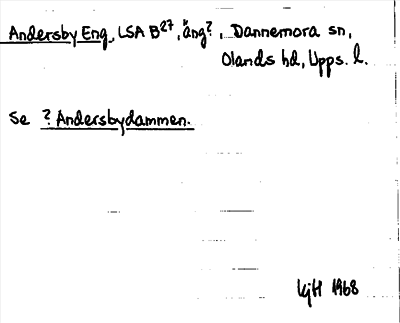 Andersby Eng, LSA B27, äng?, Dannemora sn,
Olands hd, Upps. l.
Se ? Andersbydammen.
KjH 1968